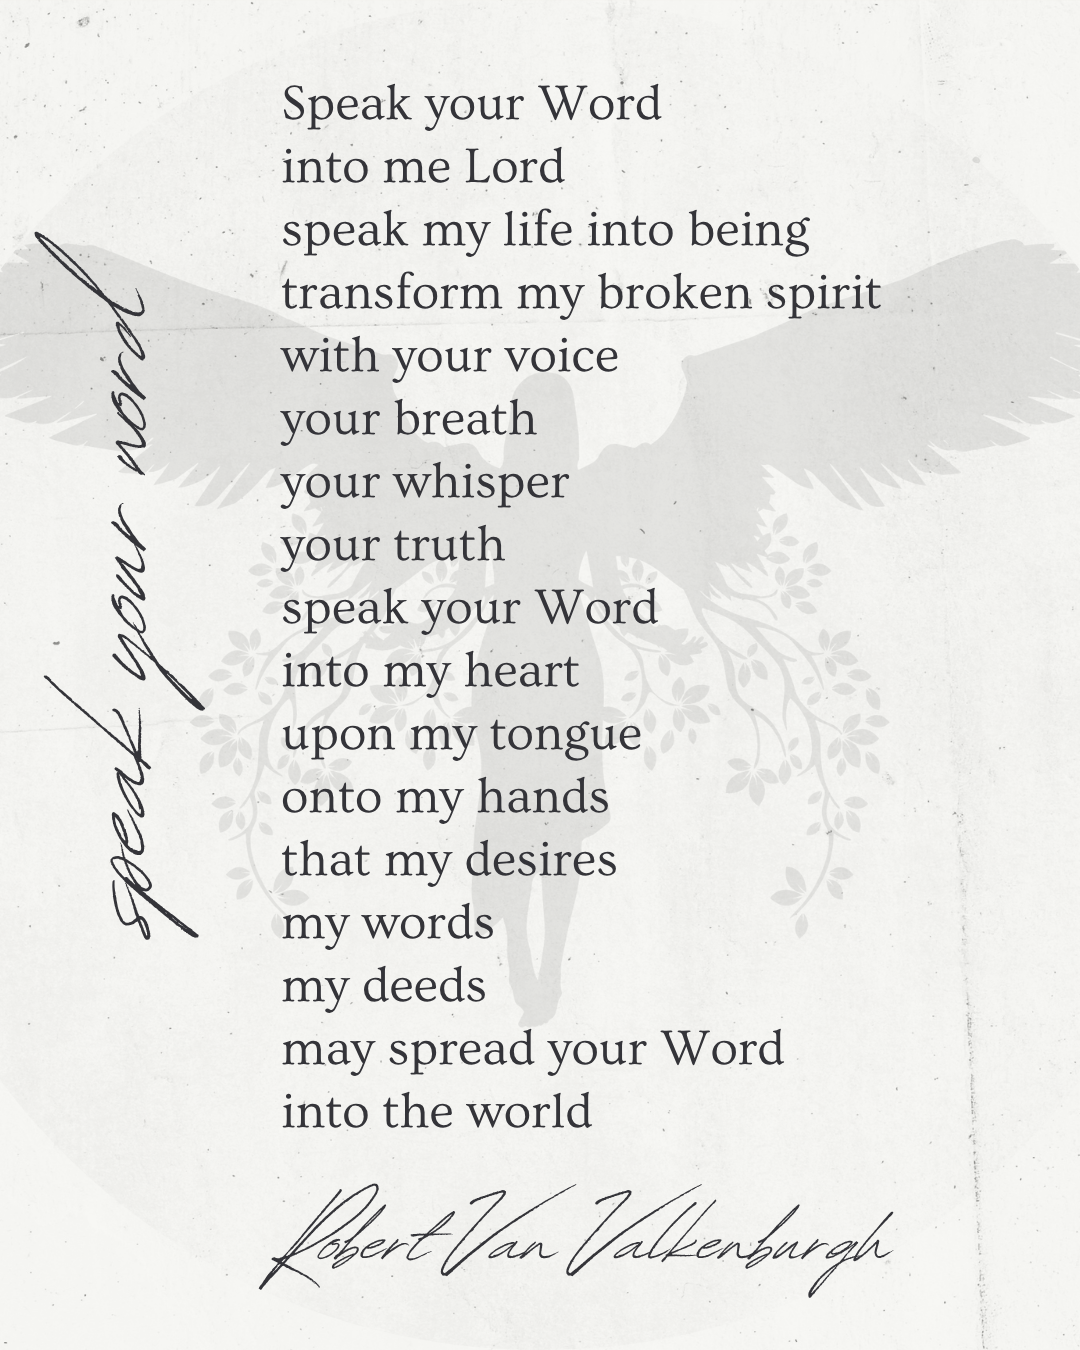 speak your word
Speak your Word
into me Lord
speak my life into being
transform my broken spirit
with your voice
your breath
your whisper
your truth
speak your Word
into my heart
upon my tongue
onto my hands
that my desires
my words
my deeds
may spread your Word
into the world
Robert Van Valkenburgh